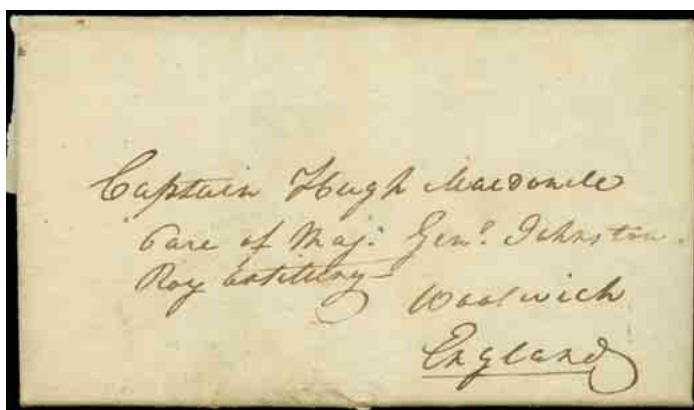 Captain Hugh Macdonell
Care of Maj: Genl. Johnston.
Roy Artillery
Woolwich
England